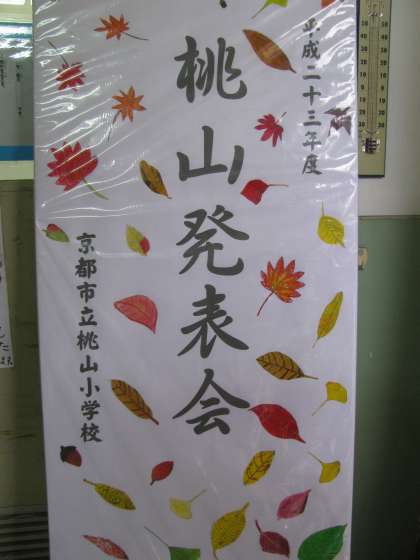 平成二十三年度
桃山発表会
京都市立桃山小学校